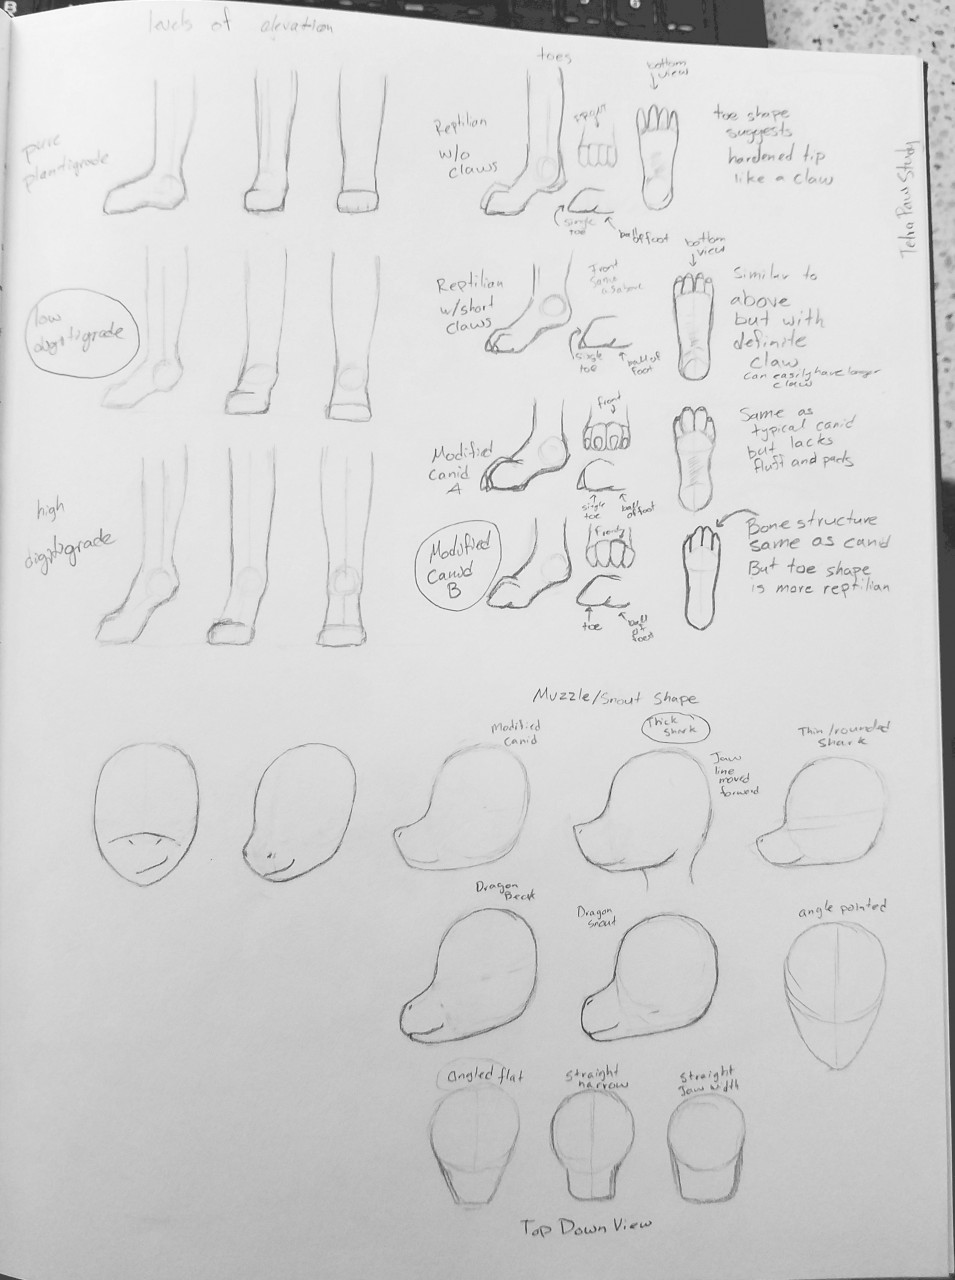 levels of elevation
pure
plantigrade
low
digitigrade
high
digitigrade
toes
Reptilian
w/o
claws
front
bottom
view
single
toe
ball of foot
toe shape
suggests
hardened tip
like a claw
Reptilian
w/short
claws
front
same
as above
bottom
view
single
toe
ball of
foot
Similar to
above
but with
definite
claw
can easily have longer
claw
Modified
canid
A
front
single
toe
ball
of foot
Same as
typical canid
but lacks
fluff and pads
Modified
Canid
B
front
toe
ball
of
foot
Bone structure
same as canid
But toe shape
is more reptilian
Paw Study
Muzzle/Snout Shape
Modified
canid
Thick
shark
Jaw
line
moved
forward
Thin/rounded
Shark
Dragon
Beak
Dragon
snout
angle pointed
angled flat
straight
narrow
straight
Jaw width
Top Down View